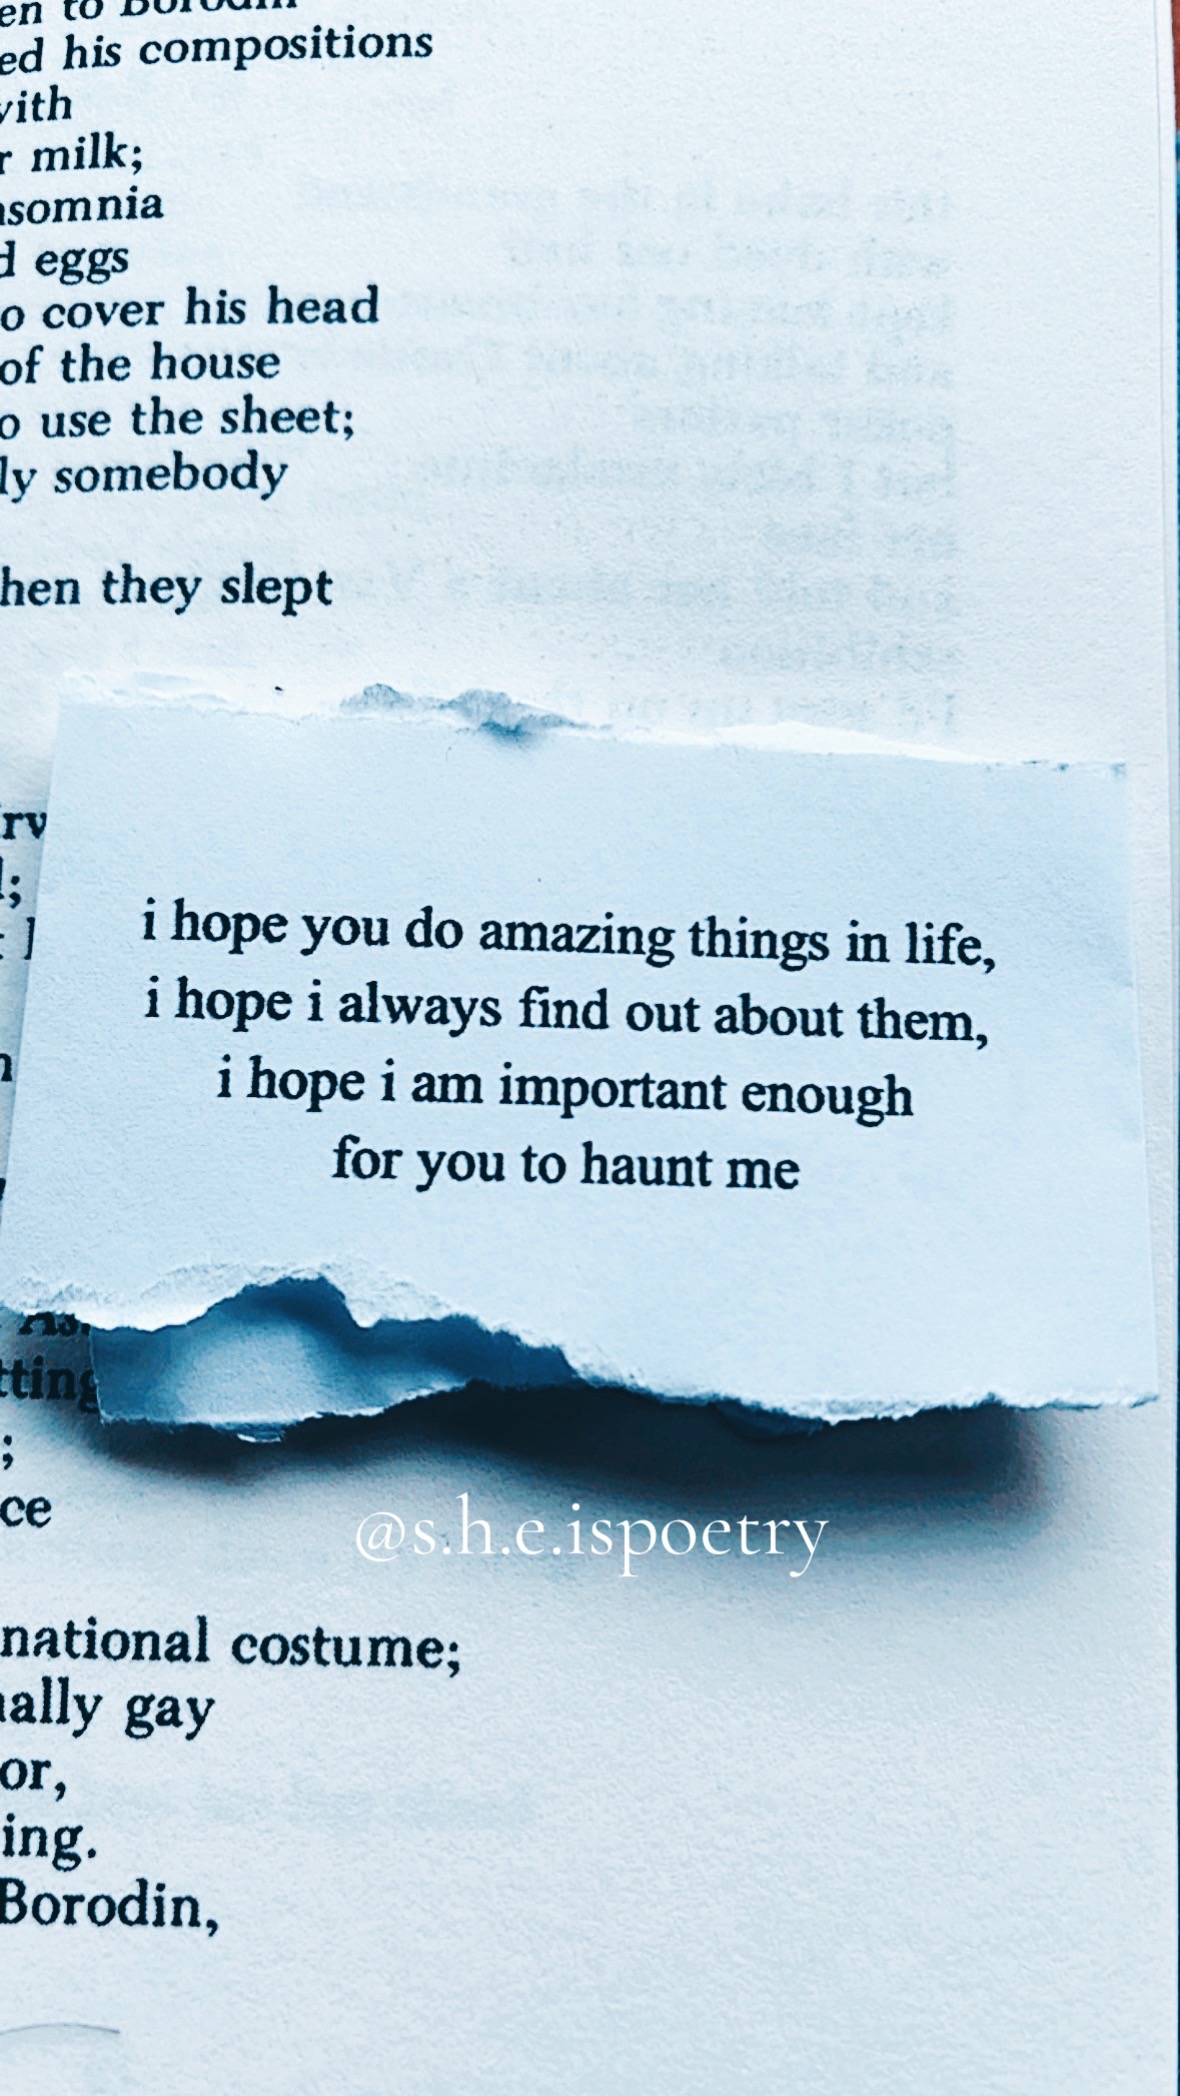 to Borodin
his compositions
milk;
eggs
cover his head
of the house
use the sheet;
somebody
they slept
i hope you do amazing things in life,
i hope i always find out about them,
i hope i am important enough
for you to haunt me
@s.h.e.ispoetry
national costume;
gay
Borodin,